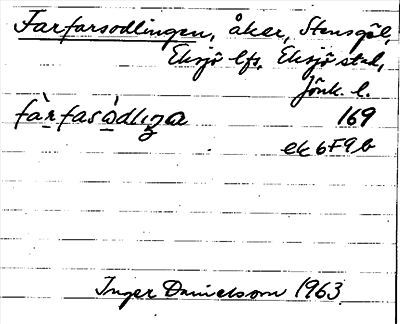 Farfarsodlingen, åker, Stensgöl,
Eksjö lfs, Eksjö stad,
Jönk. l.
fàrfasòdlıŋa 169
ek 6F9b
Inger Danielsson 1963